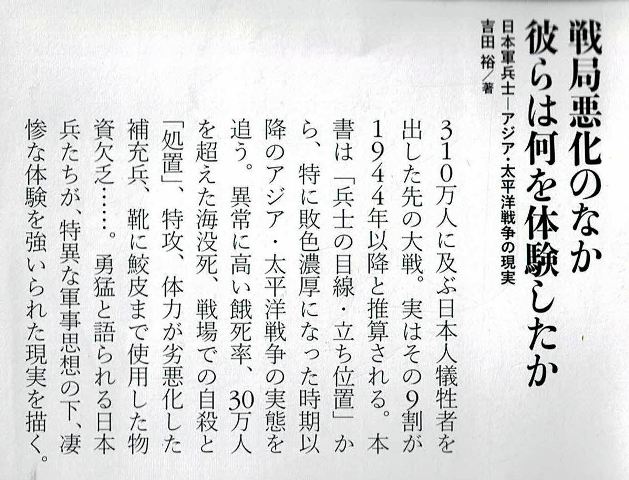 戦局悪化のなか
彼らは何を体験したか
日本軍兵士―アジア・太平洋戦争の現実
吉田 裕/著
310万人に及ぶ日本人犠牲者を
出した先の大戦。実はその9割が
1944年以降と推算される。本
書は「兵士の目線・立ち位置」か
ら、特に敗色濃厚になった時期以
降のアジア・太平洋戦争の実態を
追う。異常に高い餓死率、30万人
を超えた海没死、戦場での自殺と
「処置」、特攻、体力が劣悪化した
補充兵、靴に鮫皮まで使用した物
資欠乏……。勇猛と語られる日本
兵たちが、特異な軍事思想の下、凄
惨な体験を強いられた現実を描く。